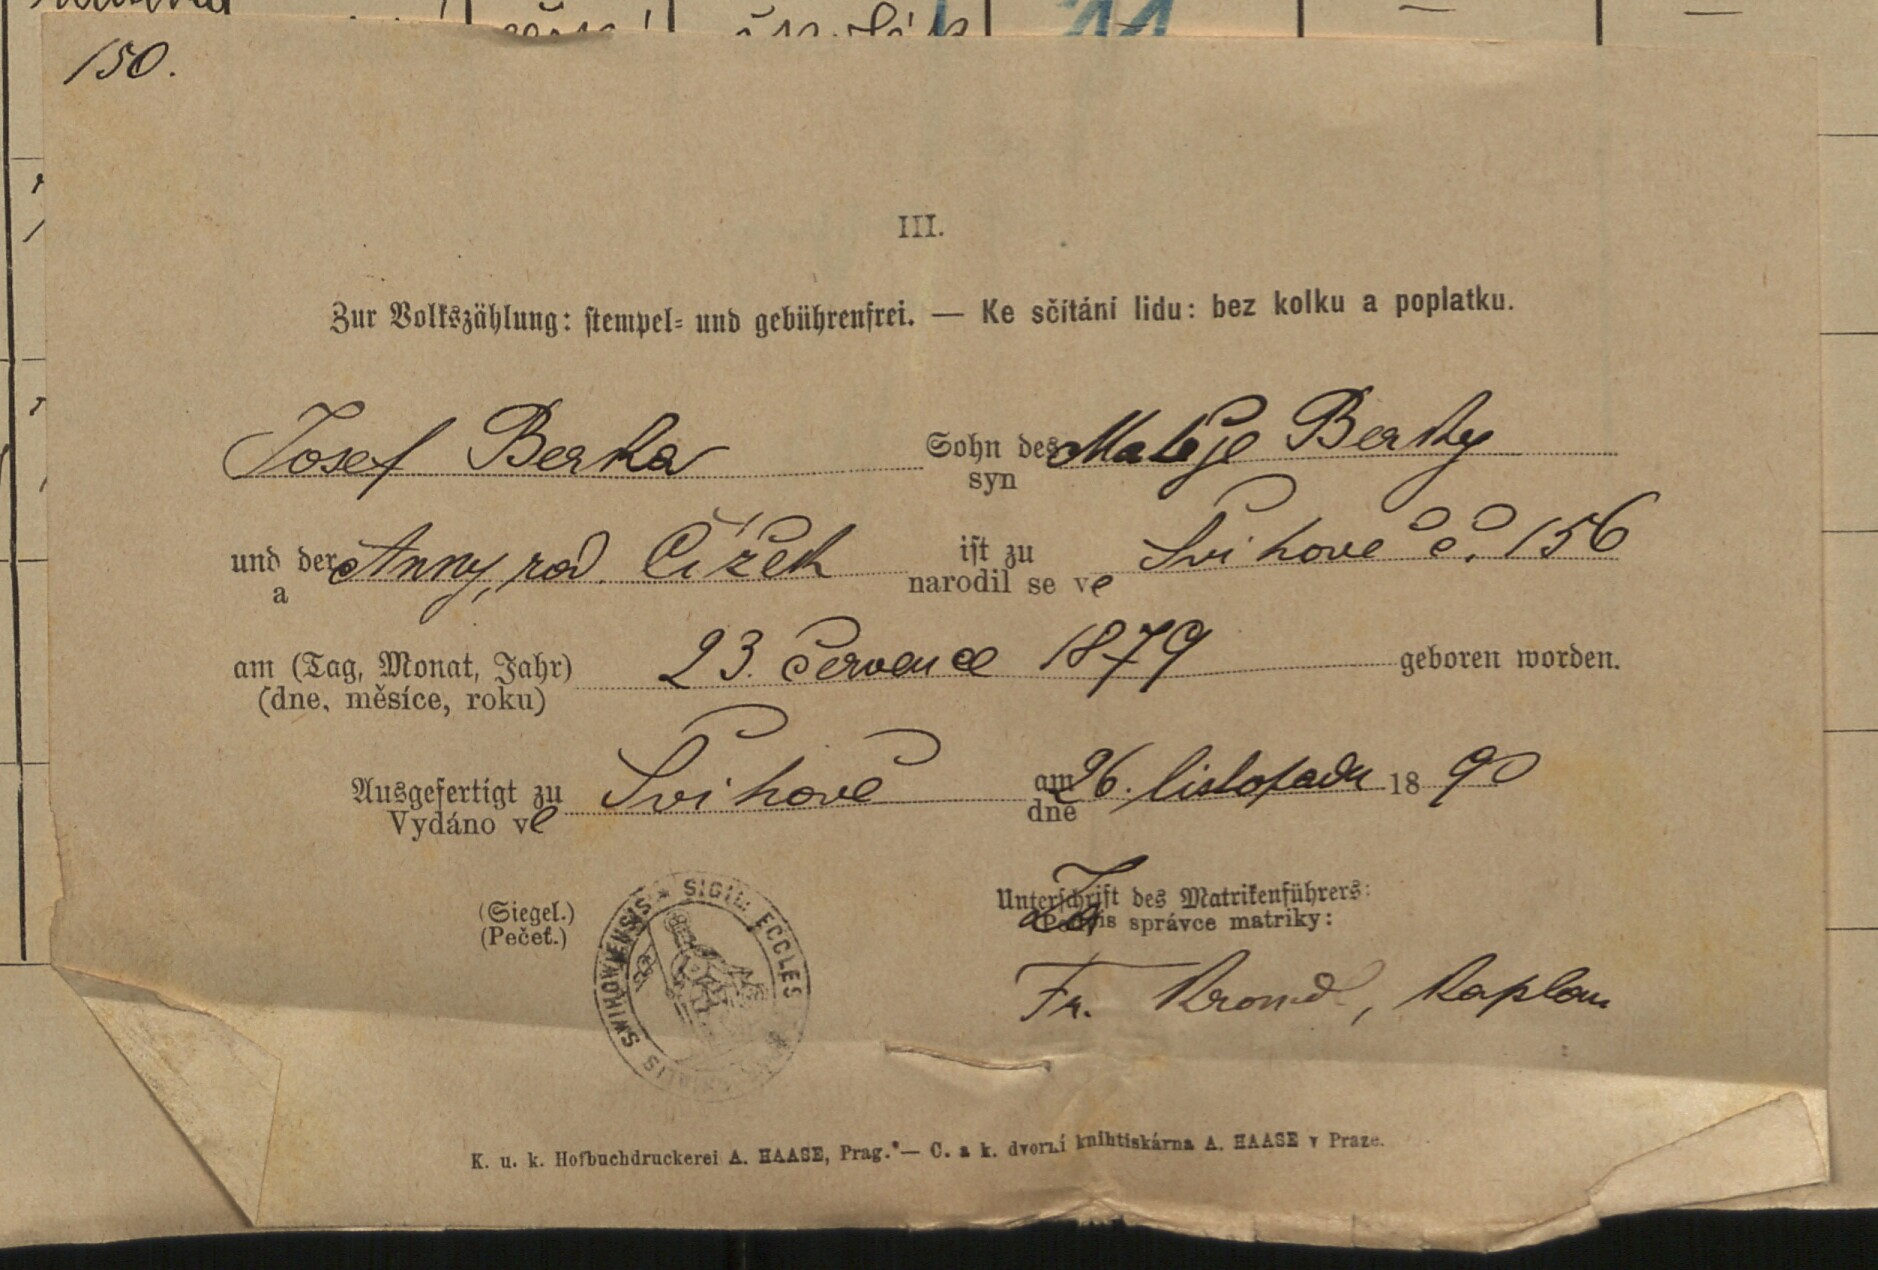 150.
III.
Zur Volkszählung: stempel- und gebührenfrei. — Ke sčítání lidu: bez kolku a poplatku.
Josef Berka Sohn des Matěje Berky
syn
und der Anny, rod. Čížek ist zu Švihově č. 156
a narodil se ve
am (Tag, Monat, Jahr) 23. července 1879 geboren worden.
(dne, měsíce, roku)
Ausgefertigt zu Švihově am 26. listopadu 1890
Vydáno ve dne
(Siegel.) Unterschrift des Matrikenführers:
(Pečeť.) Podpis správce matriky:
SIGIL: ECCLES SWIHOWIENSIS
Fr. kaplan
K. u. k. Hofbuchdruckerei A. HAASE, Prag. — C. a k. dvorní knihtiskárna A. HAASE v Praze.